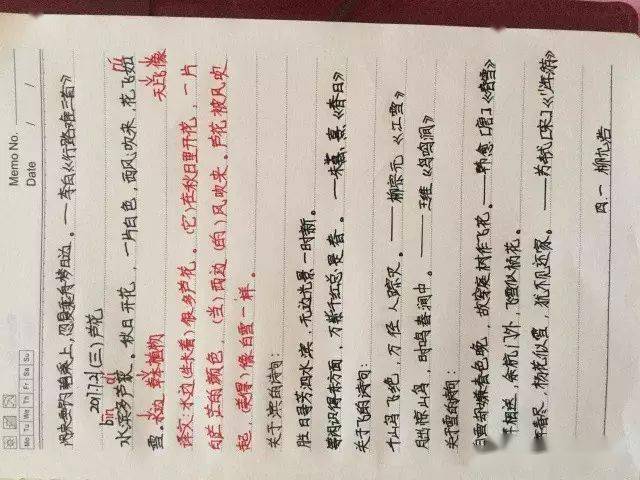 Memo No.
Date / /
Mo Tu We Th Fr Sa Su
闲来垂钓碧溪上，忽复乘舟梦日边。——李白《行路难三首》
2017.7.21（三）芦花
bīn dí
水滨多芦荻。秋日开花，一片白色，西风吹来，花飞如
雪。水边 草本植物 天 飞 像
译文：水边（生长着）很多芦花。（它）在秋日里开花，一片
白茫茫的颜色，（当）西边（的）风吹来，芦花被风吹
起，像白雪一样。
关于滨的诗句：
胜日寻芳泗水滨，无边光景一时新。
等闲识得东方面，万紫千红总是春。——朱熹《春日》
关于飞的诗句：
千山鸟飞绝，万径人踪灭。——柳宗元《江雪》
月出惊山鸟，时鸣春涧中。——王维《鸟鸣涧》
关于雪的诗句：
白雪却嫌春色晚，故穿庭树作飞花。——韩愈[唐]《春雪》
不相送，余杭门外，飞雪似杨花。
春尽，杨花似雪，犹不见还家。——苏轼[宋]《少年游》
四.一 柳化浩